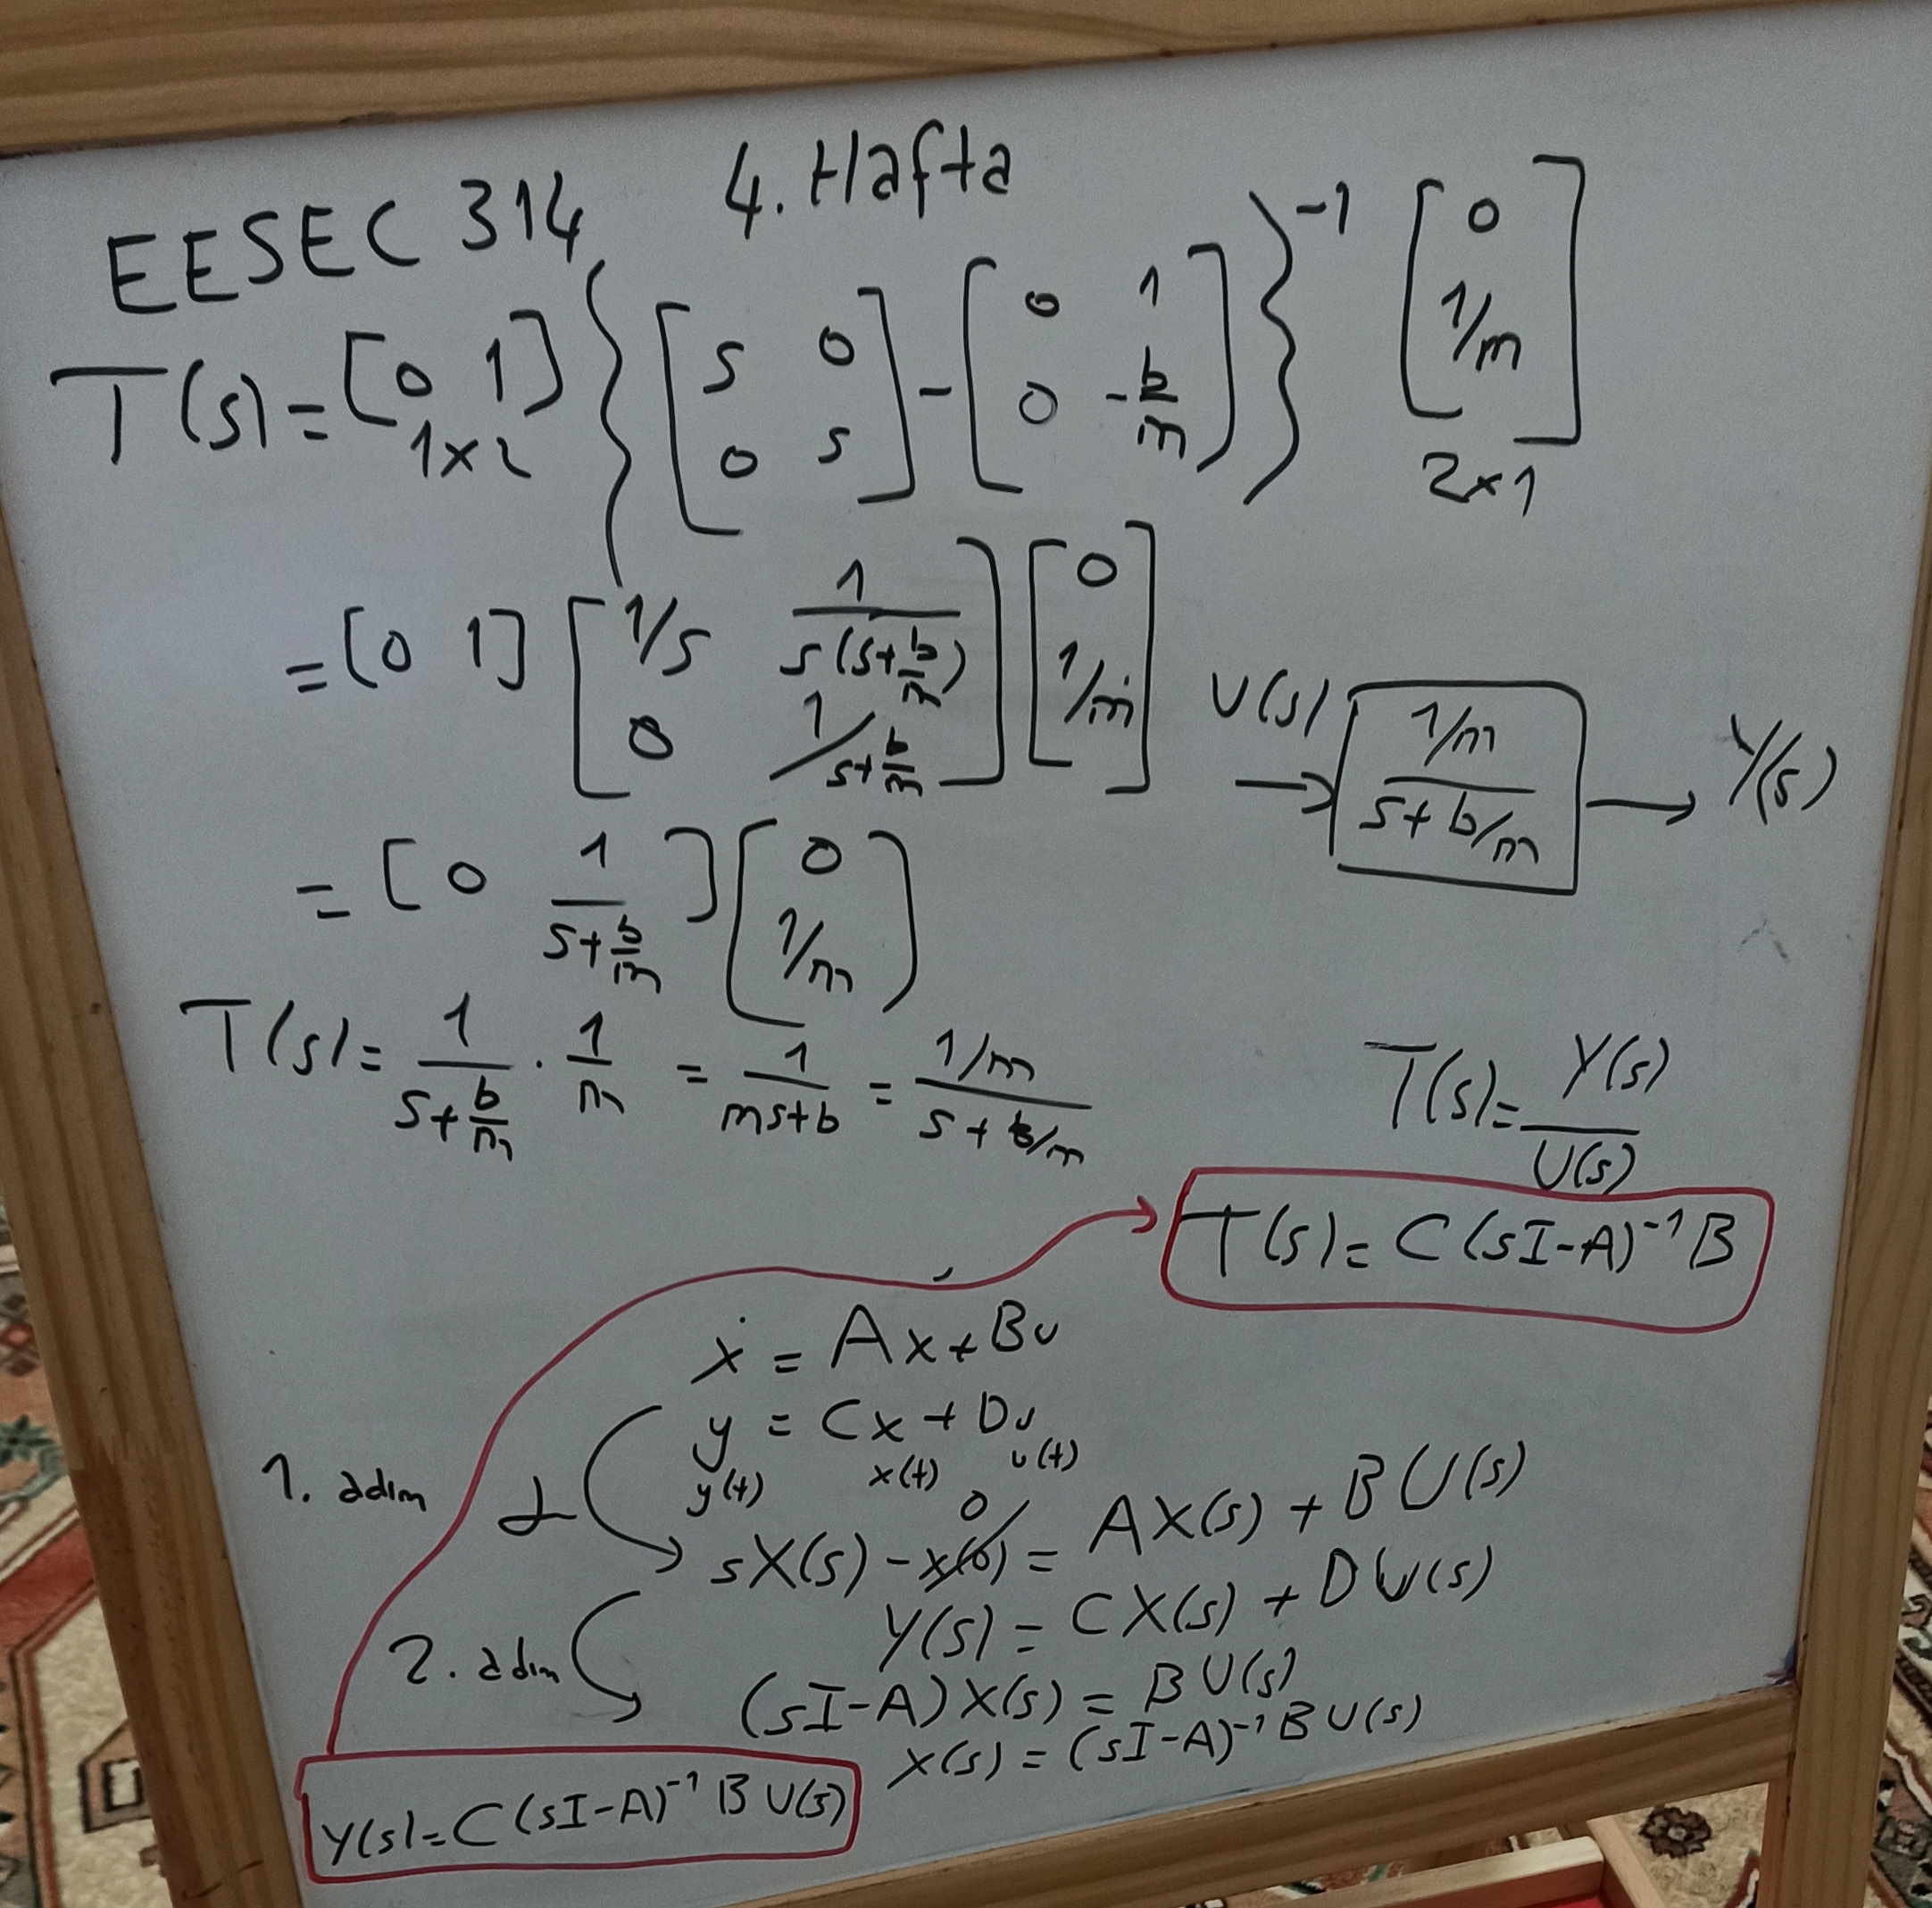 EESEC 314 4. Hafta
T(s) = [0 1] { [s 0; 0 s] - [0 1; 0 -b/m] }^-1 [0; 1/m]
1x2
2x1
= [0 1] [1/s 1/(s(s+b/m)); 0 1/(s+b/m)] [0; 1/m]
U(s) → (1/m)/(s+b/m) → Y(s)
= [0 1/(s+b/m)] [0; 1/m]
T(s) = 1/(s+b/m) · 1/m = 1/(ms+b) = (1/m)/(s+b/m)
T(s) = Y(s)/U(s)
T(s) = C(sI-A)^-1 B
ẋ = Ax + Bu
y = Cx + Du
y(t) x(t) u(t)
1. adım
sX(s) - x(0) = AX(s) + BU(s)
0
Y(s) = CX(s) + DU(s)
2. adım
(sI-A)X(s) = BU(s)
X(s) = (sI-A)^-1 BU(s)
Y(s) = C(sI-A)^-1 BU(s)